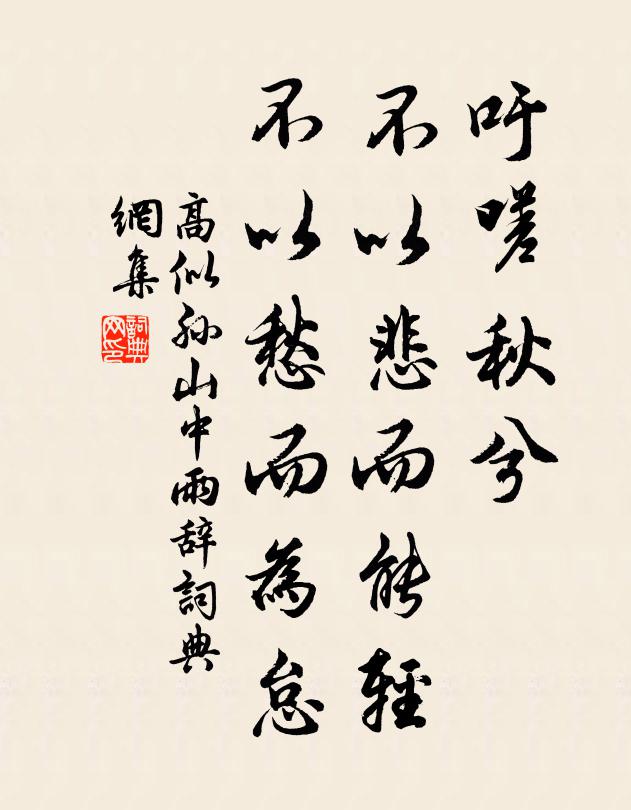 吁嗟秋兮
不以悲而能輕
不以愁而為怠
高似孙山中雨辞詞典
網集
詞典
网印